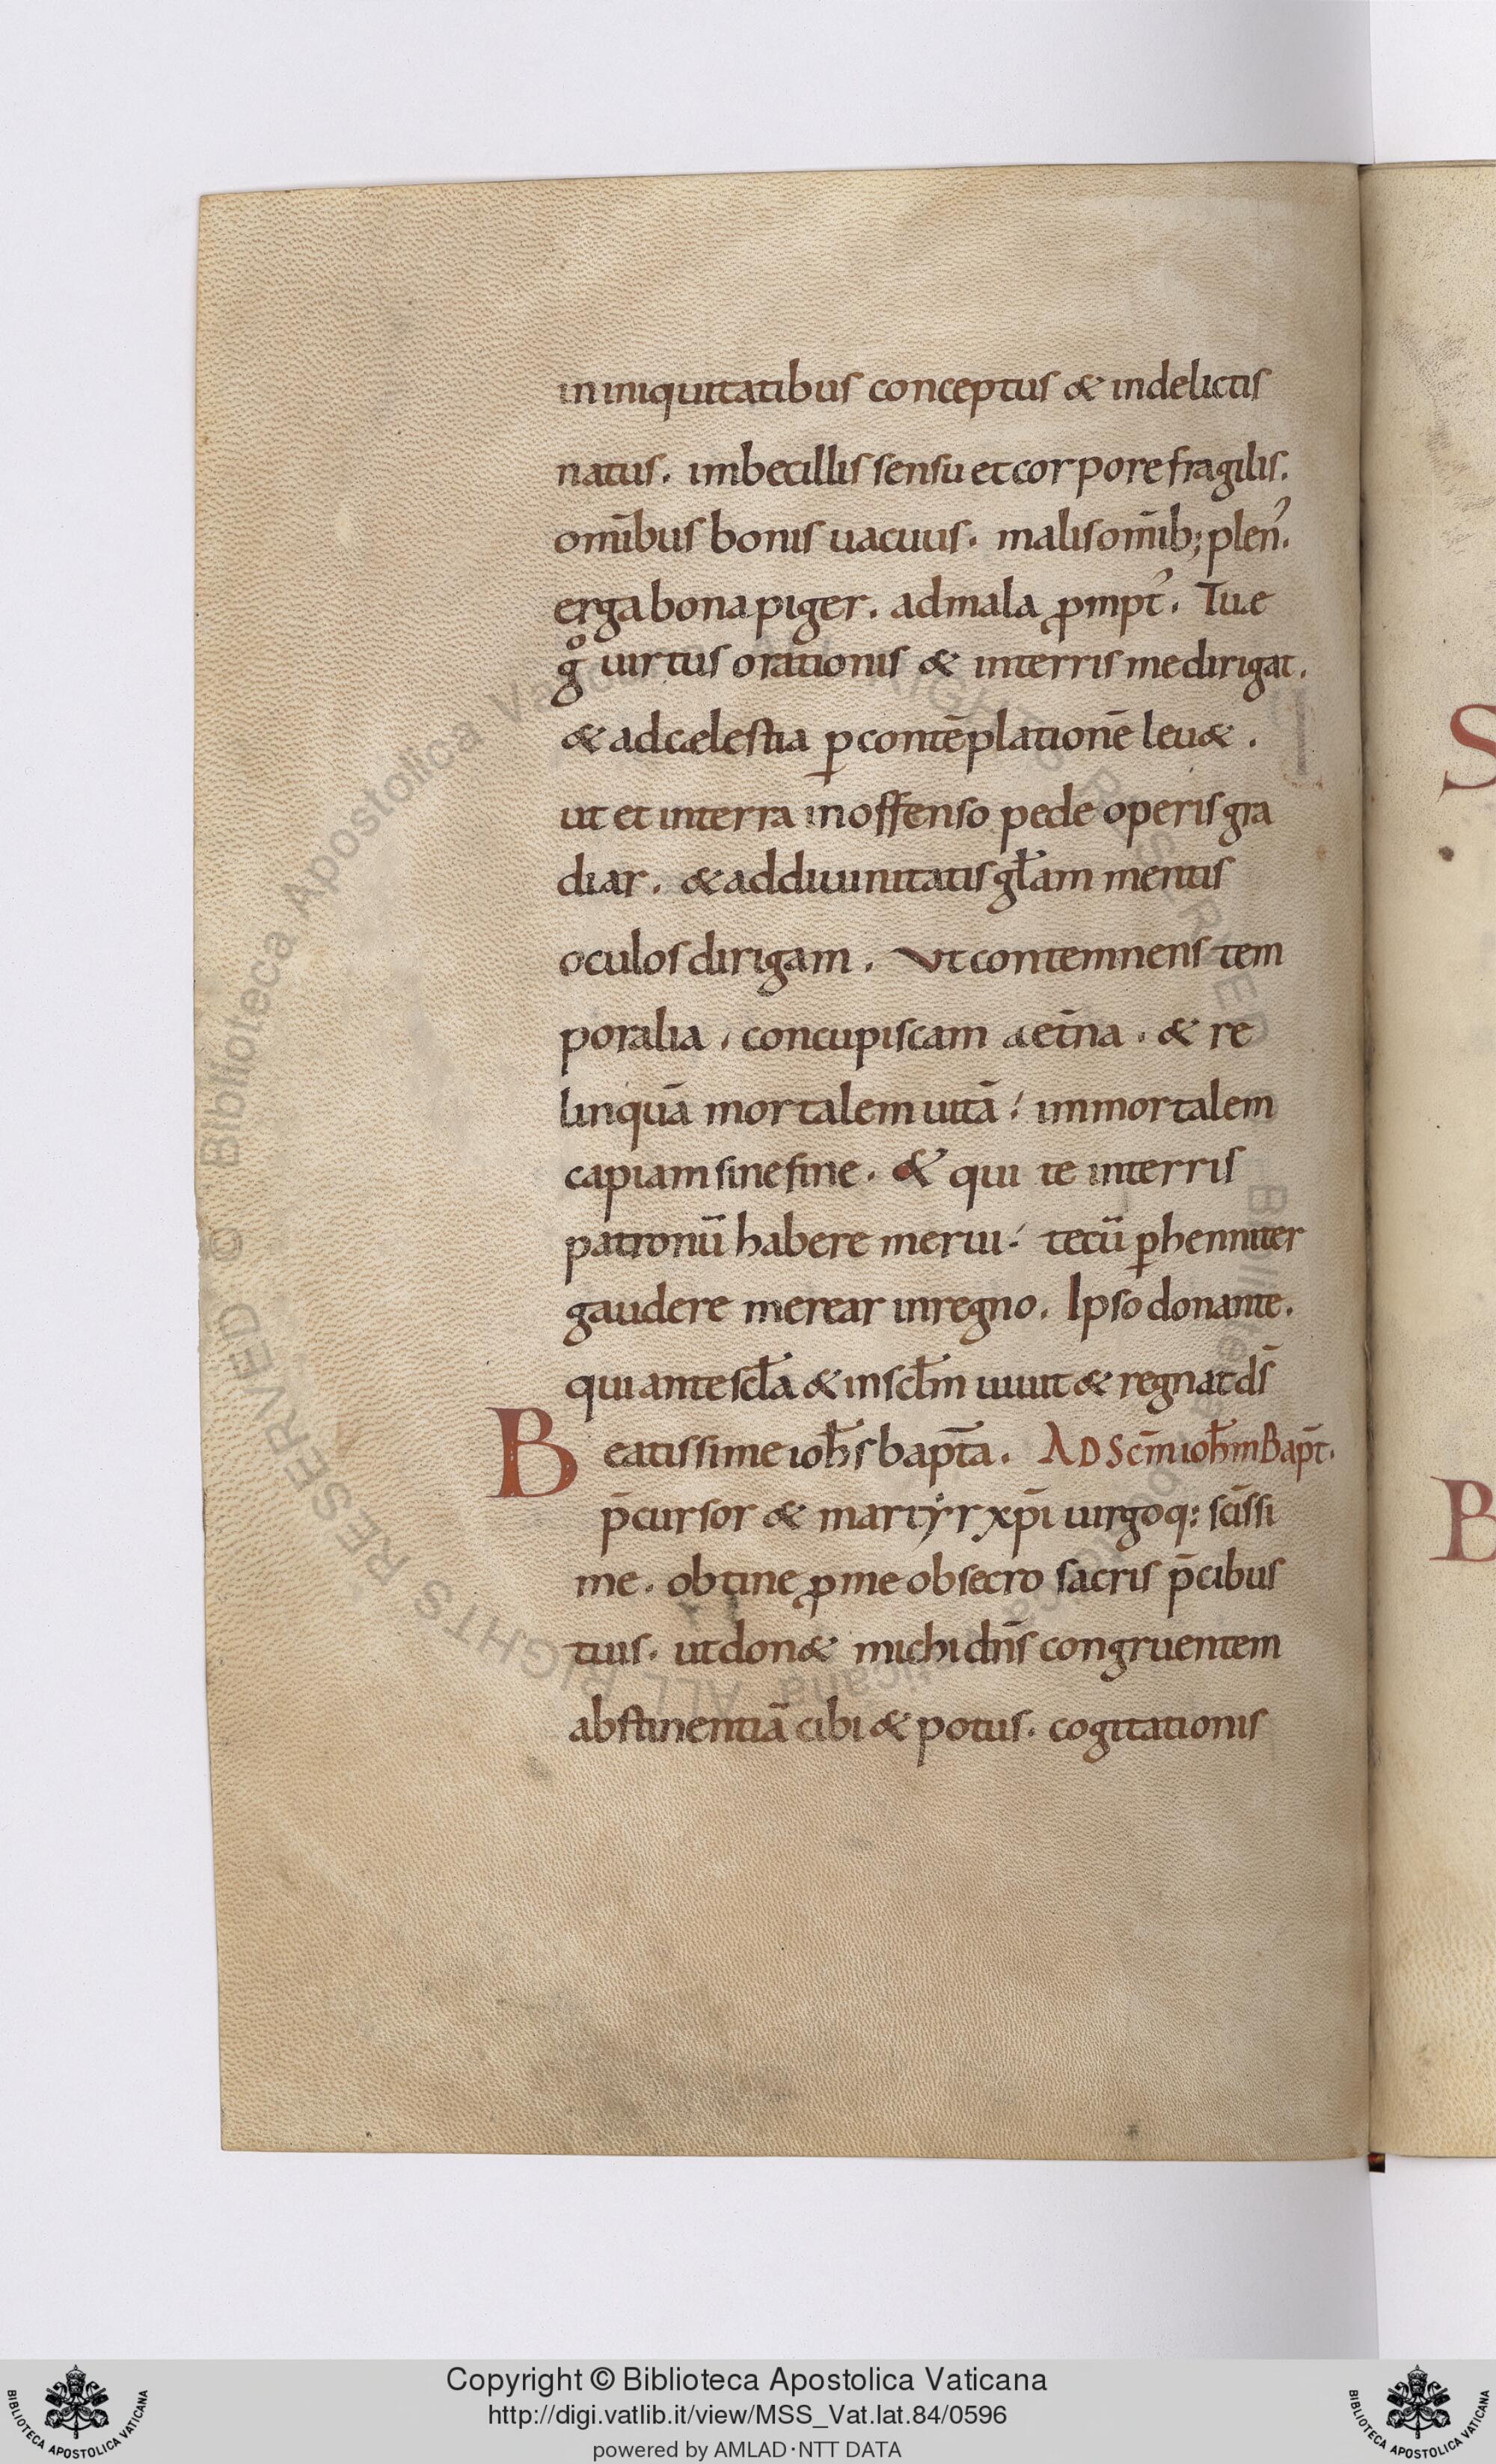 in iniquitatibus conceptus & indelictis
natus. imbecillis sensu et corpore fragilis.
om̄ibus bonis uacuus. malis om̄ib; plen᾿.
erga bona piger. ad mala ꝓmpt᾿. Tu.e
gͦ uirtus orationis & interris me dirigat.
& ad cælestia ꝑ contēplationē leu&.
ut et interra inoffenso pede operis gra
diar. & ad diuinitatis gl̄am mentis
oculos dirigam. Vt contemnens tem
poralia, concupiscam aet̄na. & re
linquā mortalem uitā! immortalem
capiam sine fine. & qui te interris
patronū habere merui! tecū ꝑhenniter
gaudere merear inregno. Ipso donante.
qui ante scl̄a & in scl̄m uiuit & regnat d̄s
Beatissime ioh̄s bapt̄a. AD Sc̄m ioh̄m Bapt̄.
p̄cursor & martẏr xp̄i uirgoq: sc̄issi
me. obtine ꝓ me obsecro sacris p̄cibus
tuis. ut don& michi dn̄s congruentem
abstinentiā cibi & potus. cogitationis
S
B
Copyright © Biblioteca Apostolica Vaticana
http://digi.vatlib.it/view/MSS_Vat.lat.84/0596
powered by AMLAD·NTT DATA
BIBLIOTECA APOSTOLICA VATICANA
BIBLIOTECA APOSTOLICA VATICANA